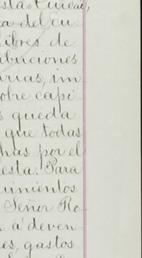 esta ciudad,
a del cu
libres de
ibuciones
arias, im
obre capi
s queda
que todas
has por el
esta. Para
uimientos
Señor Ro
n á deven
es, gastos